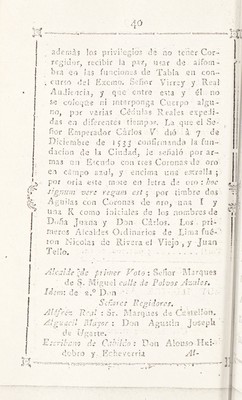 40
además los privilegios de no tener Cor-
regidor, recibir la paz, usar de alfom-
bra en las funciones de Tabla en con-
curso del Excmo. Señor Virrey y Real
Audiencia, y que entre esta y él no
se coloque ni interponga Cuerpo algu-
no, por varias Cédulas Reales expedi-
das en diferentes tiempos. La que el Se-
ñor Emperador Cárlos V dió á 7 de
Diciembre de 1537 confirmando la fun-
dacion de la Ciudad, le señaló por ar-
mas un Escudo con tres Coronas de oro
en campo azul, y encima una estrella;
por orla este mote en letra de oro: hoc
signum vere regum est; por timbre dos
Aguilas con Coronas de oro, una I y
una K como iniciales de los nombres de
Doña Juana y Don Cárlos. Los pri-
meros Alcaldes Ordinarios de Lima fué-
ron Nicolas de Rivera el Viejo, y Juan
Tello.
Alcalde de primer Voto: Señor Marques
de S. Miguel calle de
Idem: de 2.º Don
Señores Regidores.
Alférez Real: Sr. Marques de Castellon.
Alguacil Mayor: Don Agustin Joseph
de Ugarte.
Escribano de Cabildo: Don Alonso Hei-
dobro y Echeverria
Al-